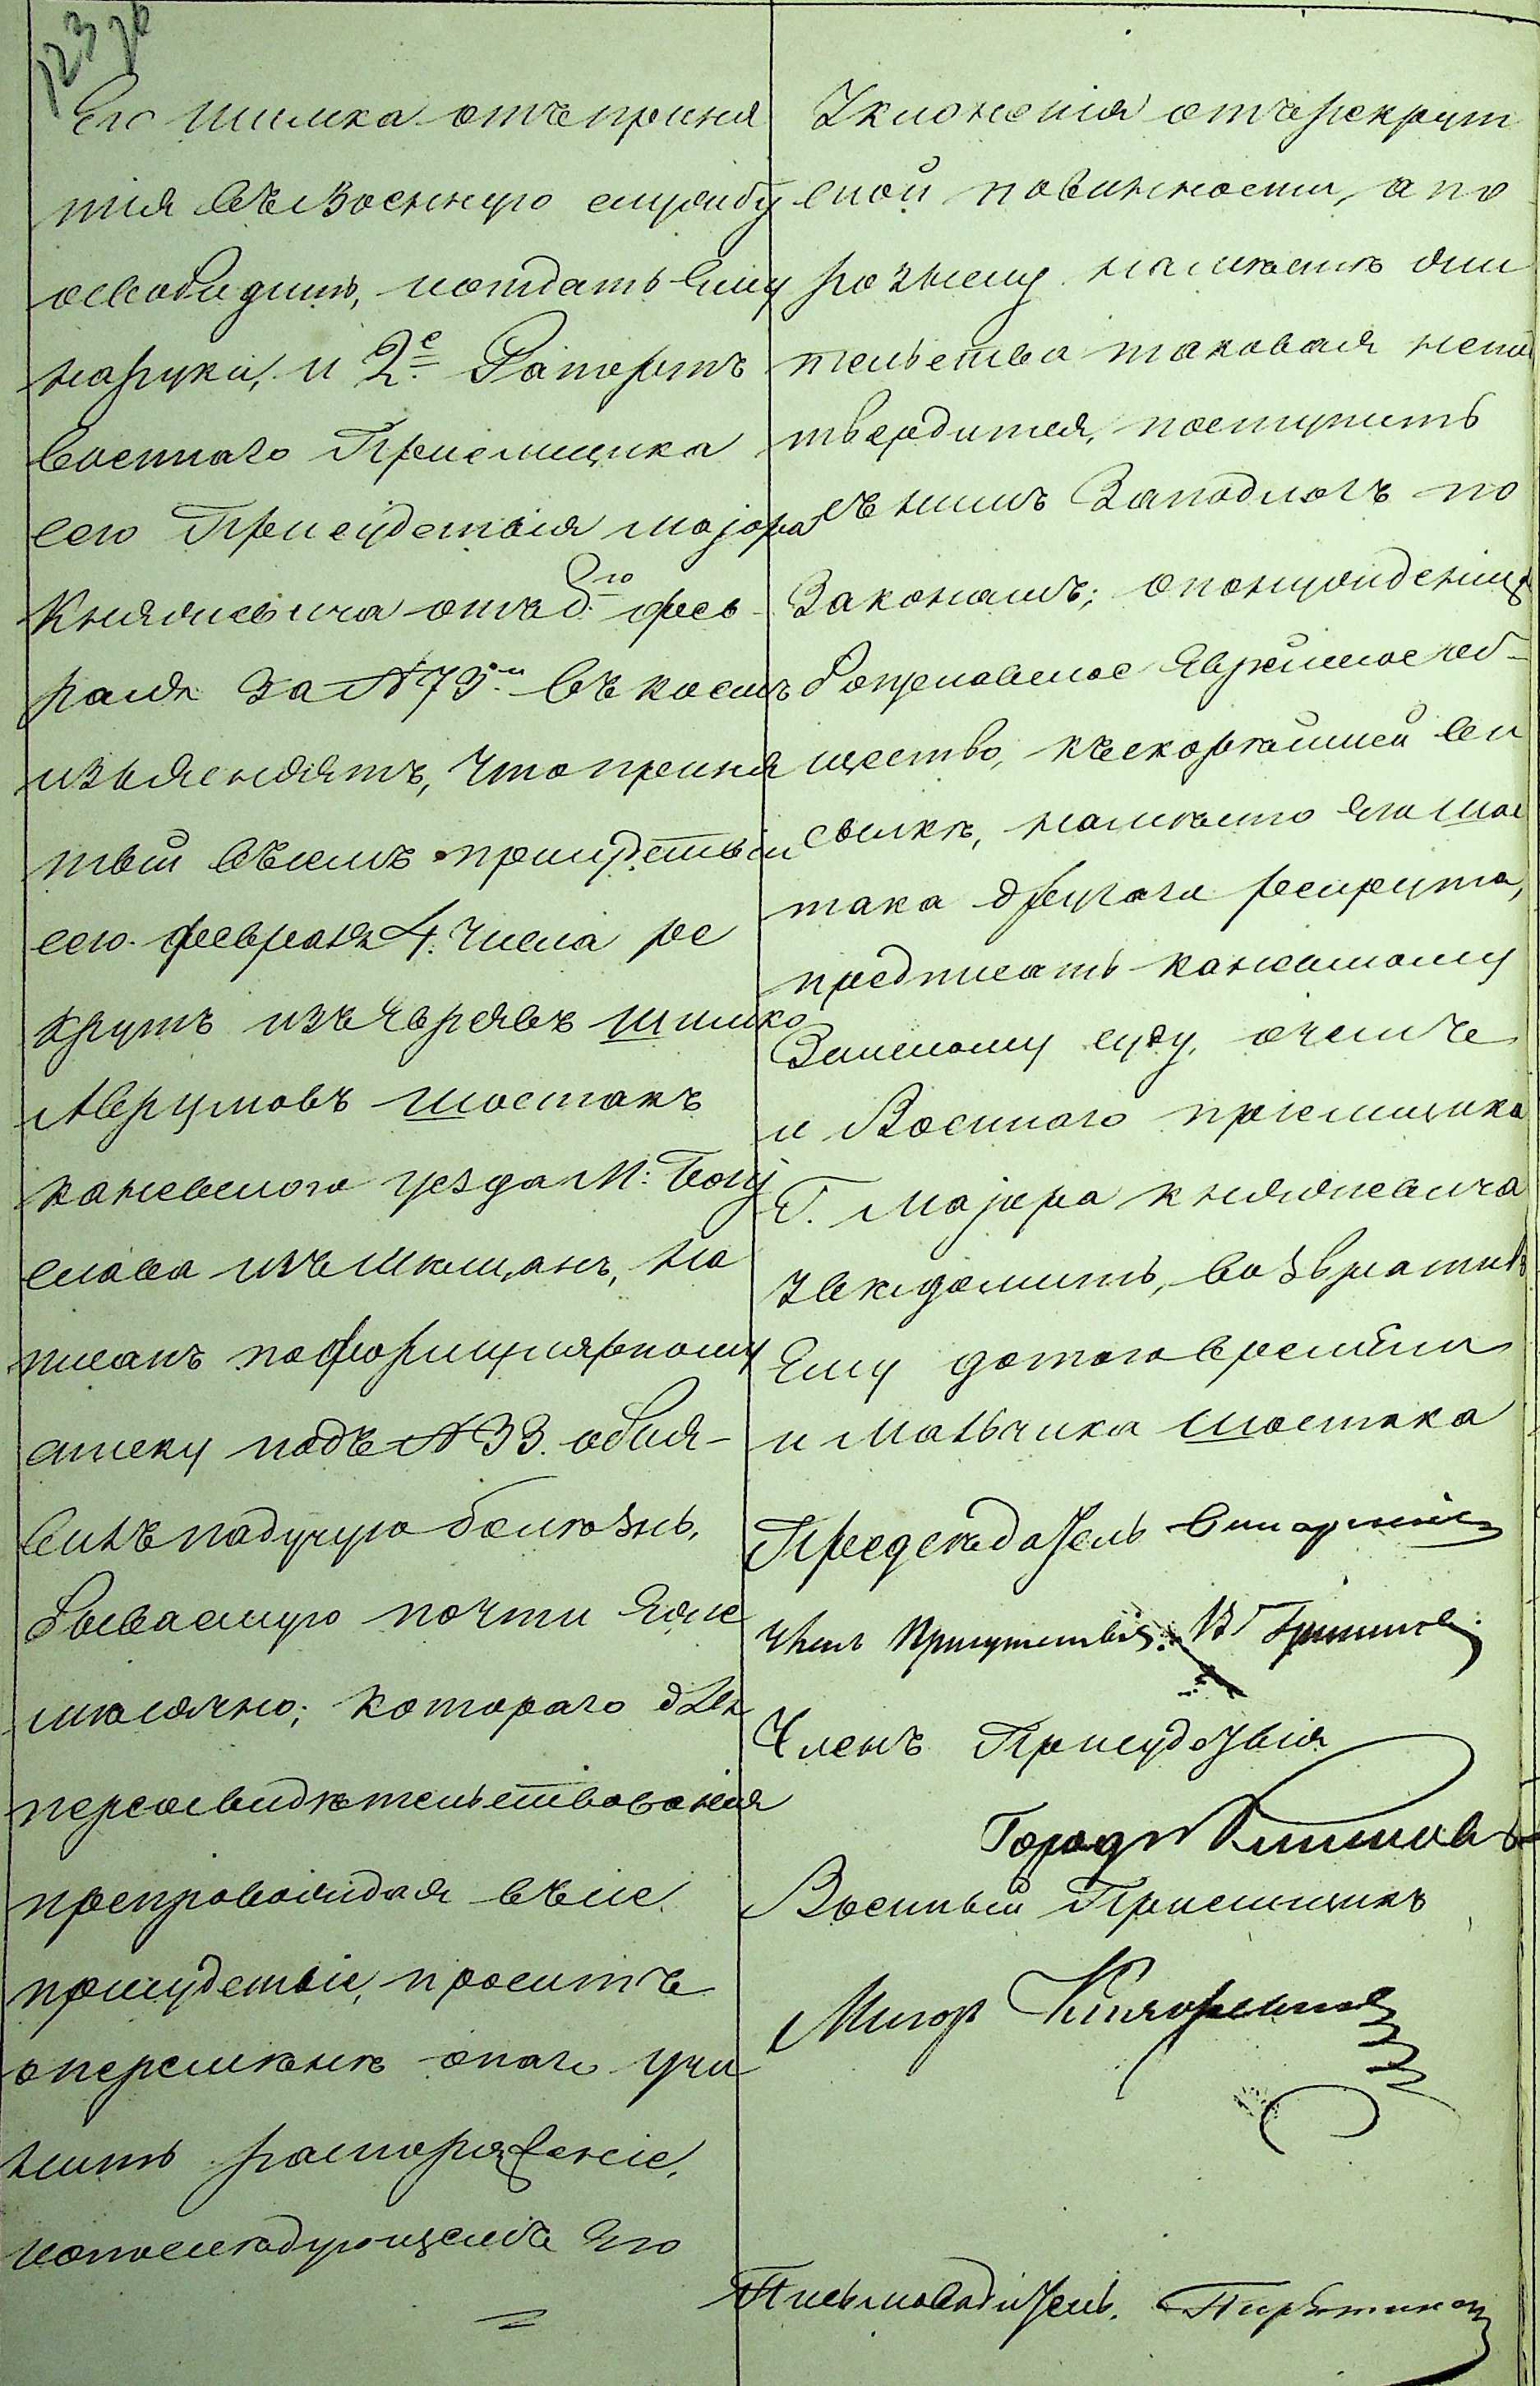 123
Его Шимка отъ приня
тія въ военную службу
освободить, и отдать Ему
на руки, и 2е Рапортъ
военнаго Пріемщика
сего Присудствія маіора
Княжевича отъ 8го фев
раля за №75м въ коемъ
изъясняетъ, что приня
тый въ семъ присудствіи
сего февраля 4. числа ре
крутъ изъ Евреевъ Шимко
Аврумовъ Шостакъ
каневскаго уезда М: Богу
слава изъ мещанъ, на
писанъ по формулярному
списку подъ №33. объя-
вилъ падучую болѣзнь,
бываемую почти еже
мѣсячно; котораго для
переосвидѣтельствованія
препровождая въ сіе
присудствіе, проситъ
о перемѣнѣ онаго учи
нить распоряженіе,
и о послѣдующемъ Его
=
Уклоненія отъ рекрут
ской повинности, а по
розыску на мѣстѣ дѣй
тельства таковая непод
твердится, поступить
съ нимъ за подлогъ по
Законамъ; о понужденіи
Богуславское Еврейское об-
щество, къ скорѣйшей вы
сылкѣ, на мѣсто его Шос
така другаго рекрута,
предписать каневскому
Земскому суду, о чемъ
и Военнаго пріемщика
Г. Маіора Княжевича
увѣдомить, возвративъ
Ему до того времени
и мальчика Шостака
Предсѣдатель
Членъ Присутствія:
Членъ Присудствія
Военный Пріемщикъ
Маіоръ Княжевичъ
Письмоводитель.